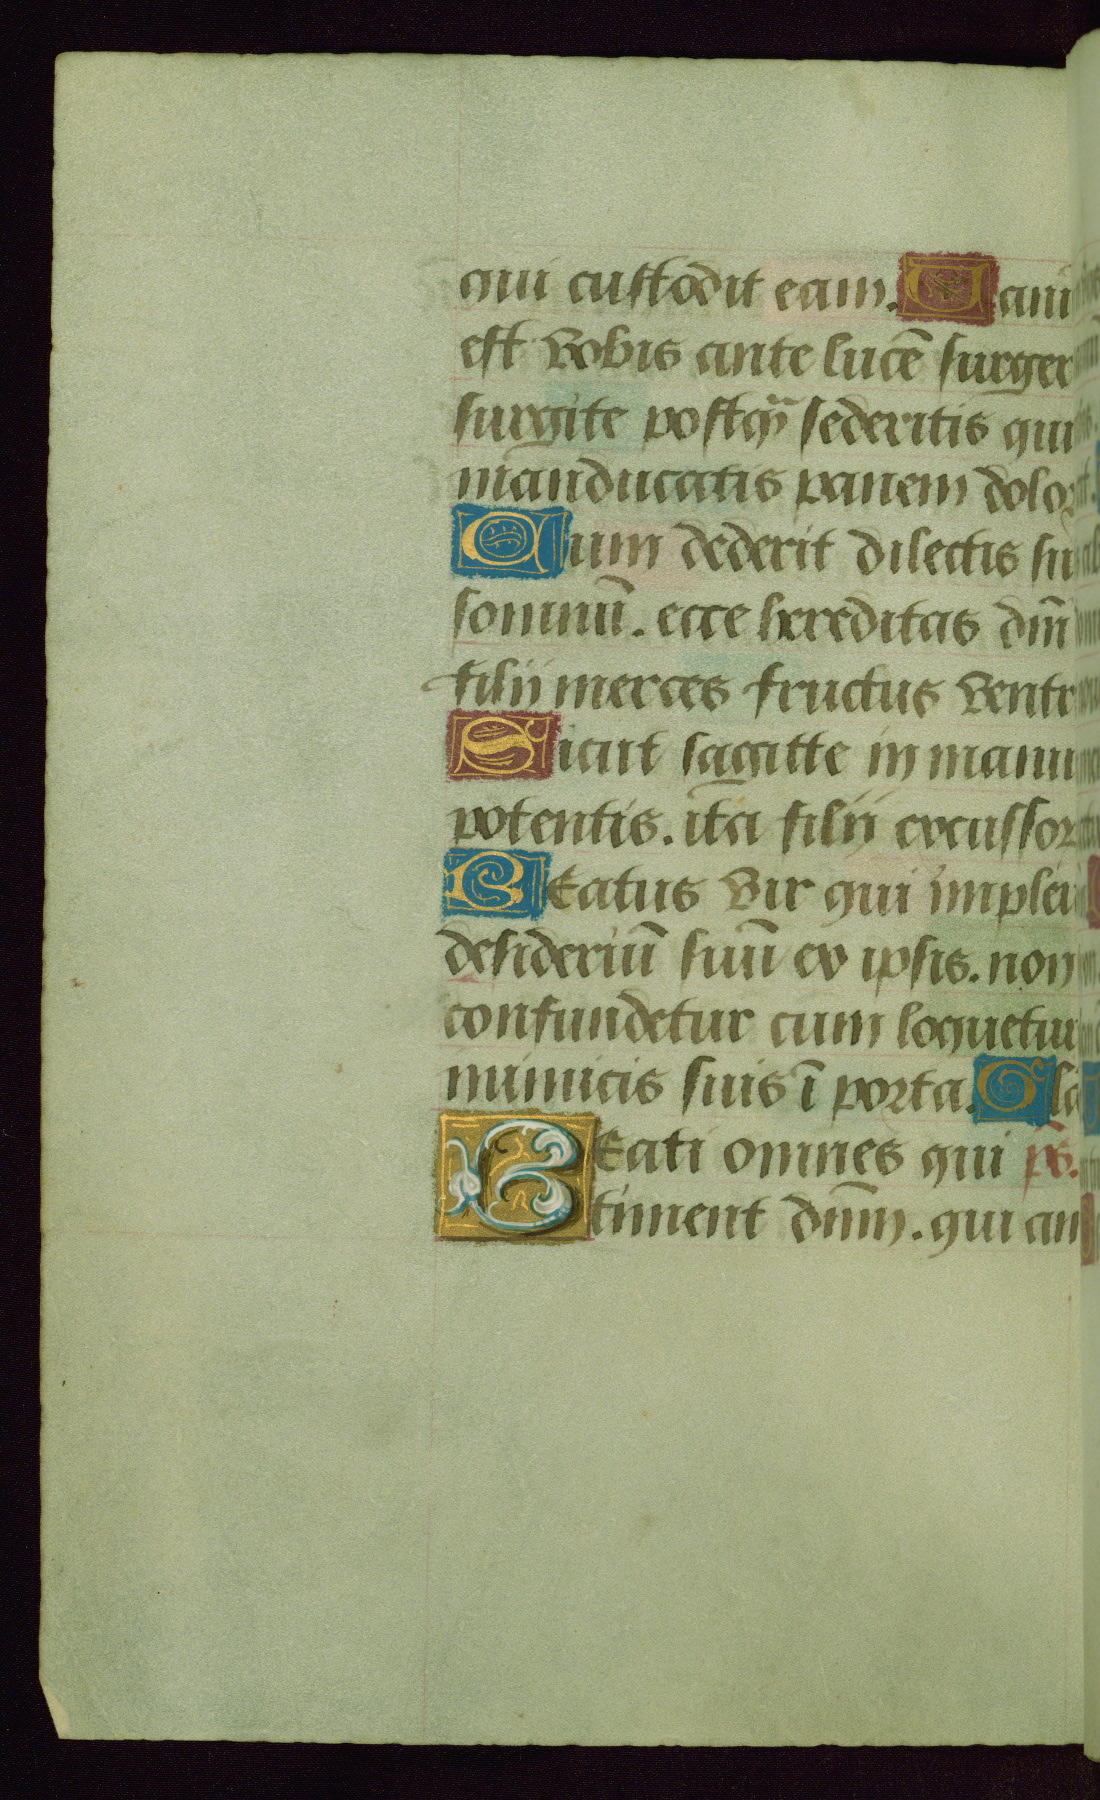 qui custodit eam. Uanu
est vobis ante lucē surger
surgite postq̄ sederitis qui
manducatis panem dolor
Cum dederit dilectis su
somnū. ecce hereditas dn̄i
filii merces fructus ventr
Sicut sagitte in manu
potentis. ita filii excussor
Beatus vir qui implev
desideriū suū ex ipsis. non
confundetur cum loquetur
inimicis suis ī porta. Gla
Beati omnes qui ps.
timent dn̄m. qui am